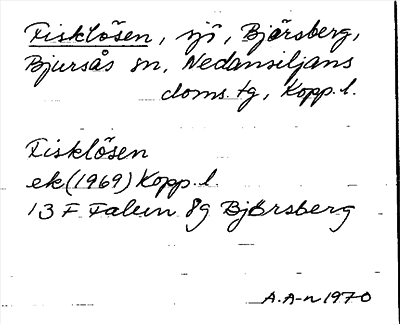 Fisklösen, sjö, Björsberg,
Bjursås sn, Nedansiljans
doms. tg, Kopp. l.
Fisklösen
ek (1969) Kopp. l.
13 F Falun 8g Björsberg
A.A-n 1970